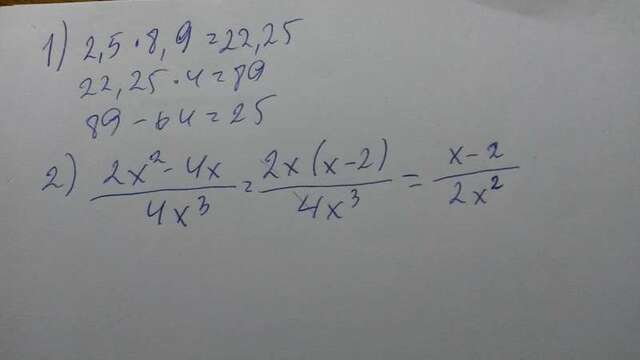 1) 2,5 · 8,9 = 22,25
22,25 · 4 = 89
89 - 64 = 25
2) (2x² - 4x)/(4x³) = (2x(x-2))/(4x³) = (x-2)/(2x²)